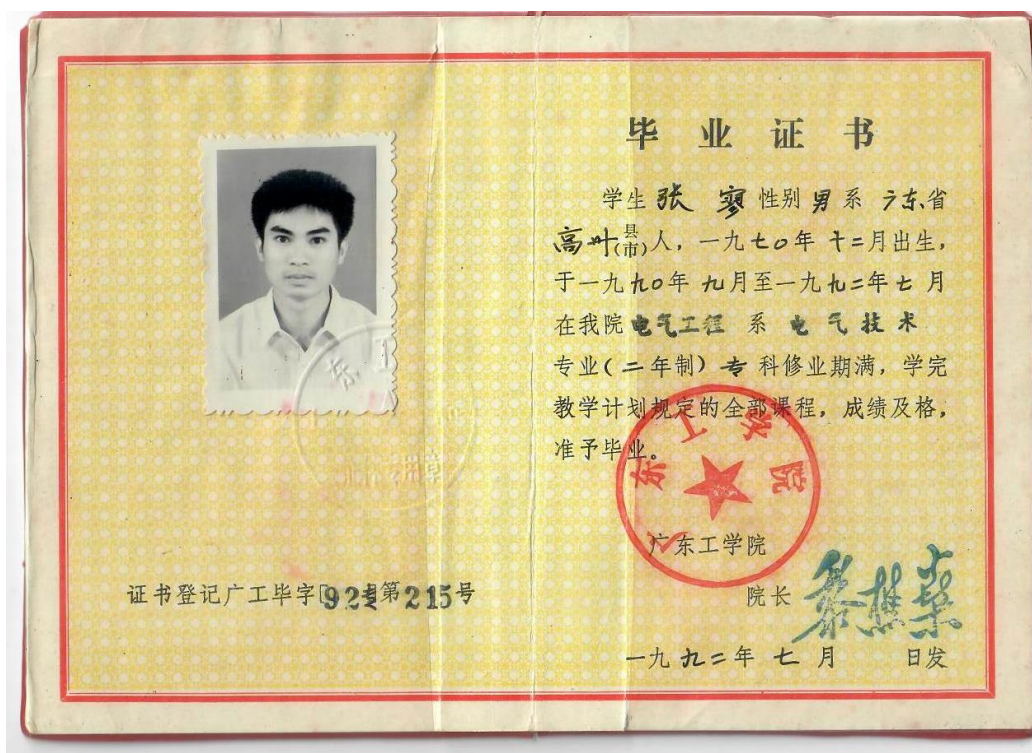 毕业证书
学生 张 寥 性别 男 系 广东省
高州(县市)人，一九七〇年 十二月出生，
于一九九〇年 九月至一九九二年 七 月
在我院 电气工程 系 电气技术
专业(二年制) 专 科修业期满，学完
教学计划规定的全部课程，成绩及格，
准予毕业。
广东工学院
广东工学院
院长
一九九二年 七 月 日发
证书登记广工毕字[92专第215号
东工